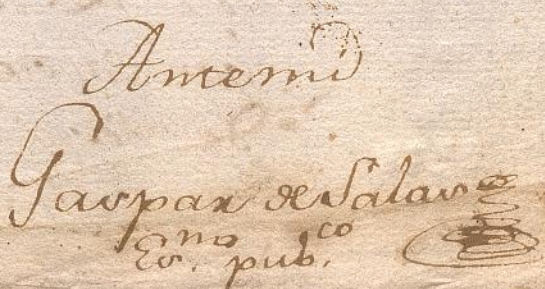 Antemi
Gaspar de Salas
Es.no pub.co